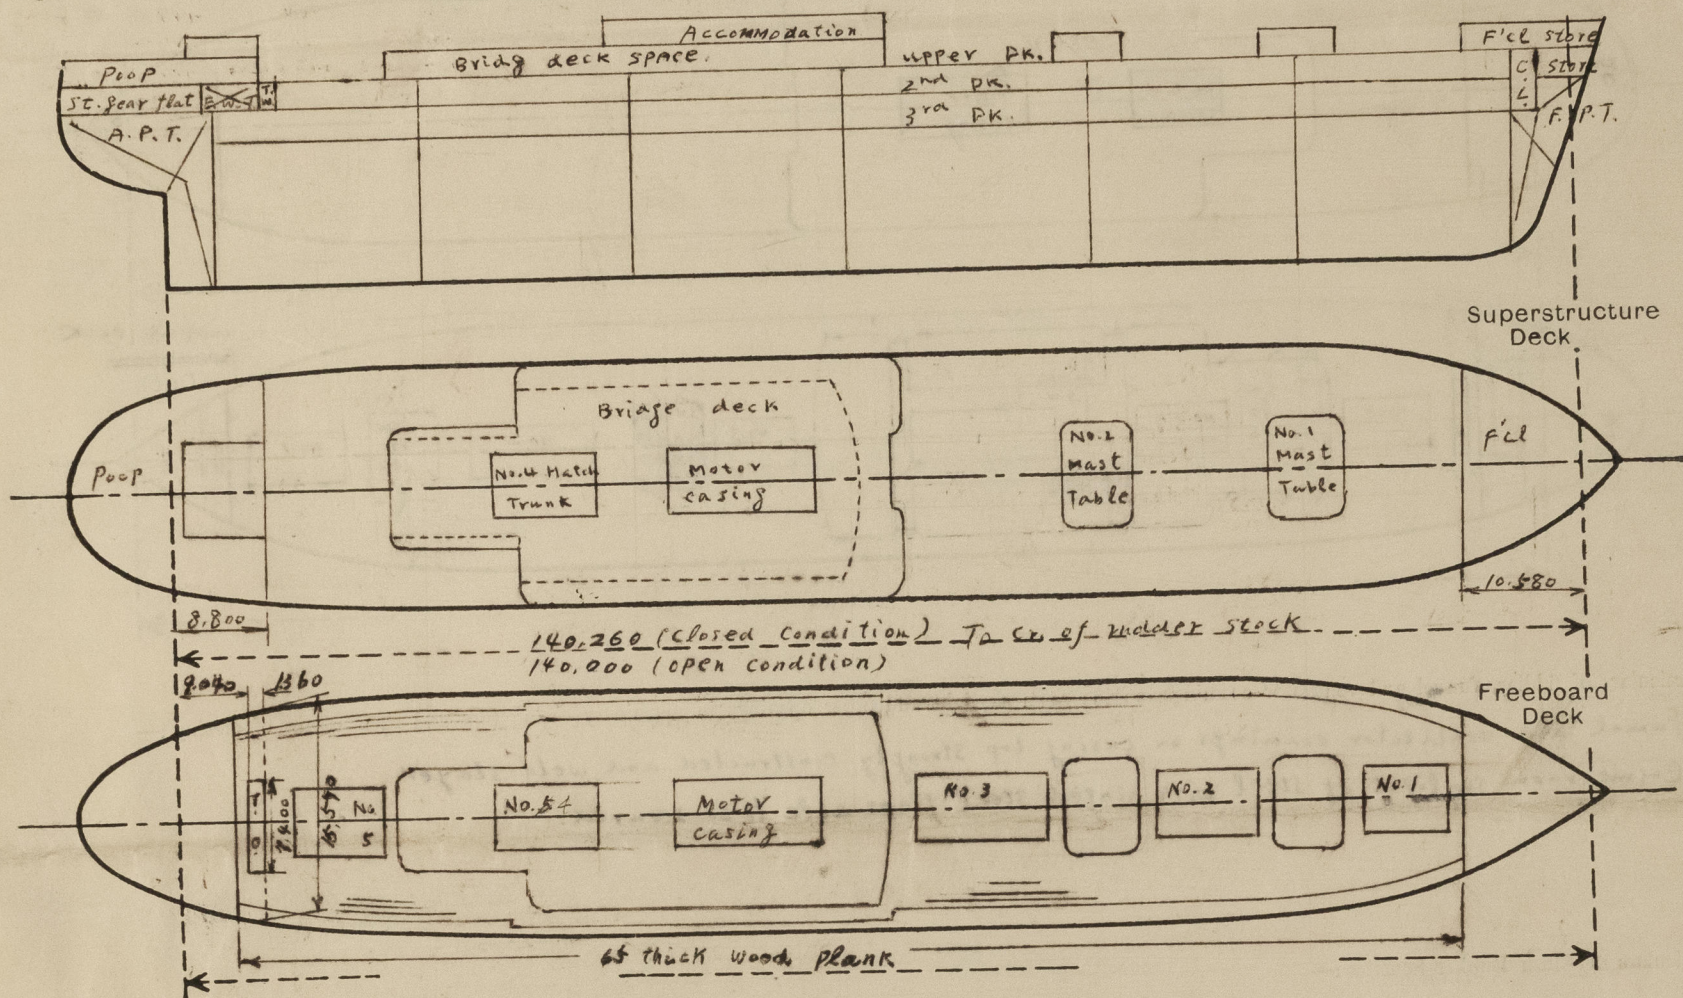 Accommodation
F'cl store
Bridg deck space.
upper DK.
Poop
C. L.
store
2nd DK.
St. gear flat
F.W.T
T.W.
3rd DK.
F.P.T.
A.P.T.
Superstructure
Deck
Briage deck
Poop
No.4 Hatch
Trunk
Motor
casing
No.2
Mast
Table
No.1
Mast
Table
F'cl
10.580
8.800
140.260 (Closed Condition) To Cr. of rudder stock
140.000 (open condition)
9.040
1360
Freeboard
Deck
7.400
15.590
No
5
No.54
Motor
casing
No.3
No.2
No.1
65 thick wood plank